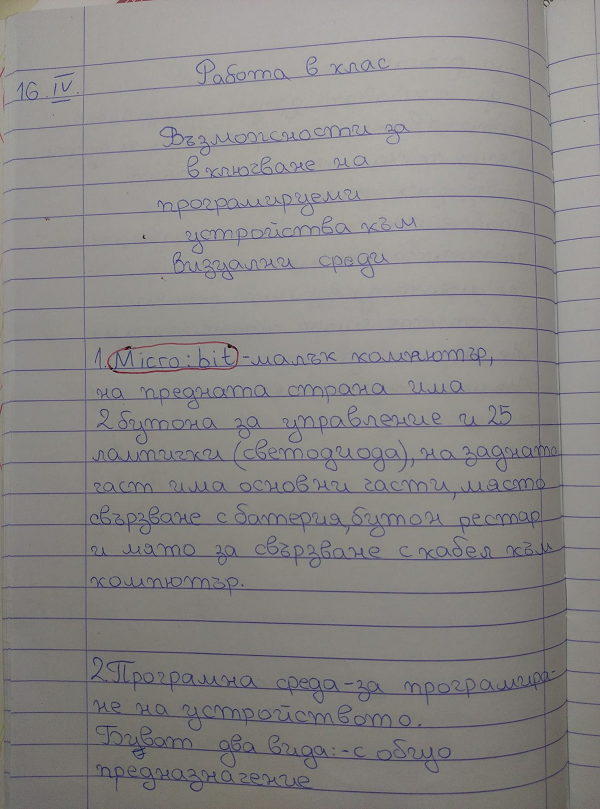 Работа в клас
16. IV.
Възможности за
включване на
програмируеми
устройства към
визуални среди
1. Micro:bit - малък компютър,
на предната страна има
2 бутона за управление и 25
лампички (светодиода), на задната
част има основни части, място
свързване с батерия, бутон рестар
и мято за свързване с кабел към
компютър.
2. Програмна среда - за програмира-
не на устройството.
Биват два вида: - с общо
предназначение